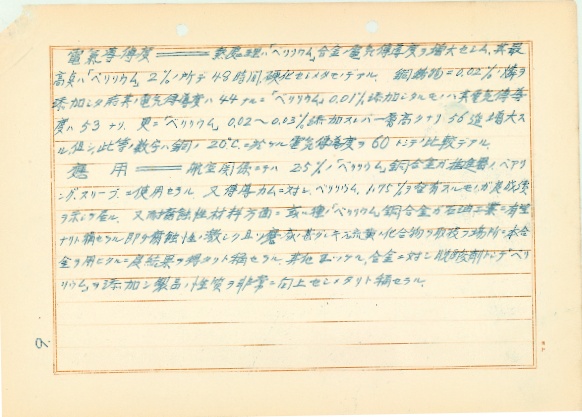 電氣導傳度 ═══ 熱処理ハ「ベリリウム」合金ノ電気傳導度ヲ増大セシム、其最
高良ハ「ベリリウム」2%ノ所デ 48時間硬化セシメタモノデアル、銅鑄物ニ0.02%ノ燐ヲ
添加シタ府来ノ電気傳導度ハ 44ナルニ「ベリリウム」0.01%添加シタルモノハ其電気傳導
度ハ 53ナリ、更ニ「ベリリウム」0.02〜0.03%添加スレバ一番高クナリ 56迄増大ス
ル、但シ此等ノ数字ハ銅ノ 20℃ニ於ケル電気傳導度ヲ 60トシテノ比較デアル
應用 ═══ 航空関係ニテハ 2.5%ノ「ベリリウム」銅合金ガ推進器ノベアリ
ング、スリーブニ使用セラル 又「カム」ニ対シベリリウム 1.75%ヲ含有スルモノガ良成績
ヲ示シ居ル、又耐腐蝕性材料方面ニ 或ル種ノ「ベリリウム」銅合金ガ石油工業ニ有望
ナリト稱セラル 即チ腐蝕性ノ激シク且ツ磨 硫黄化合物ヲ取扱フ場所ニ本合
金ヲ用ヒタルニ良結果ヲ得タリト稱セラル、其他ニッケル合金ニ対シ脱酸剤トシテ「ベリ
リウム」ヲ添加シ製品ノ性質ヲ非常ニ向上セシメタリト稱セラル
9